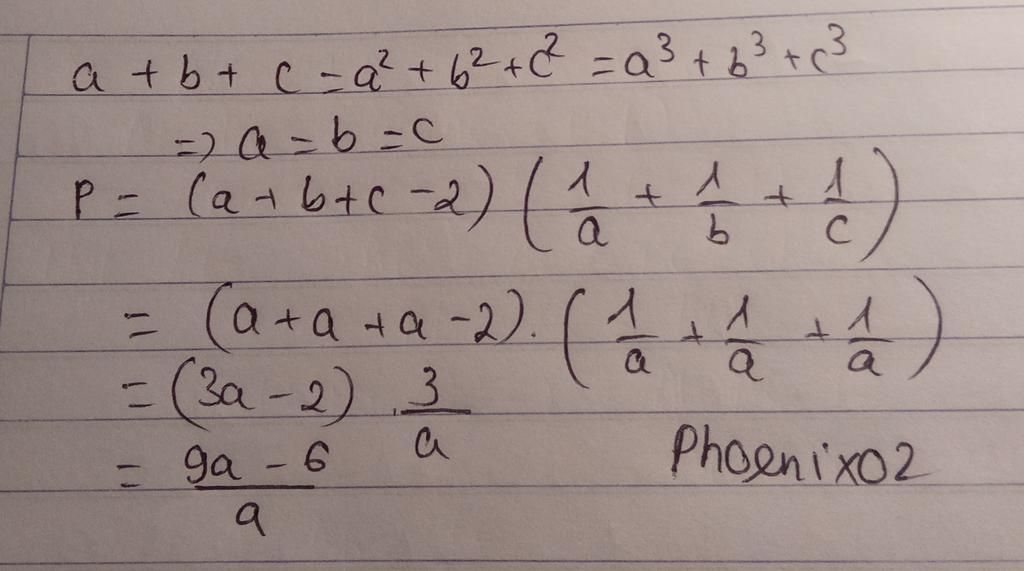 a + b + c = a² + b² + c² = a³ + b³ + c³
=> a = b = c
P = (a + b + c - 2) (1/a + 1/b + 1/c)
= (a + a + a - 2). (1/a + 1/a + 1/a)
= (3a - 2) . 3/a
= 9a - 6/a
Phoenix02